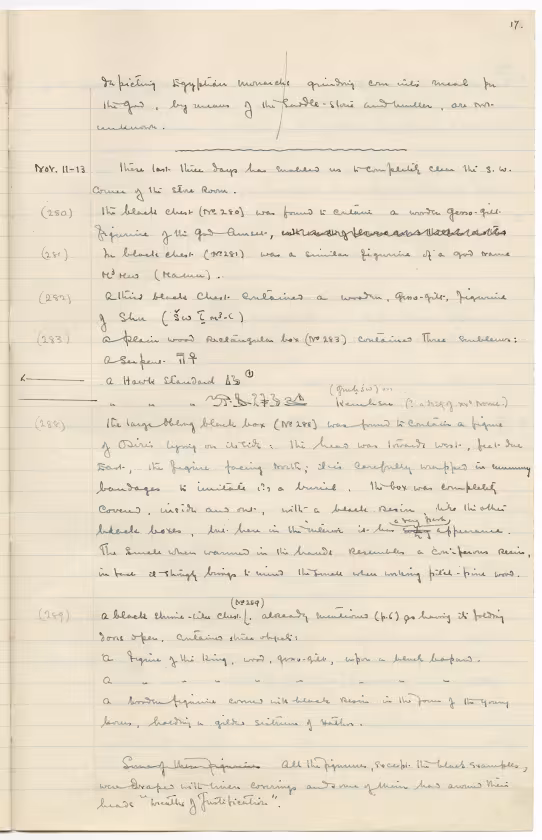 17.
depicting Egyptian monarchs grinding corn into meal for
the God, by means of the Saddle-stone and muller, are not
unknown.
Nov. 11-13 These last three days has enabled us to completely clear the S.W.
Corner of the Store Room.
(280) The black chest (Nº 280) was found to contain a wooden gesso-gilt
figurine of the god
(281) In black chest (Nº 281) was a similar figurine of a god name
(282) A third black chest contained a wooden, gesso-gilt, figurine
of Shu
(283) A plain wood rectangular box (Nº 283) contained three emblems:
A Serpent
A Hawk Standard
" "
(288) The large oblong black box (Nº 288) was found to contain a figure
of Osiris lying on its side: the head was towards west, feet due
East, the figure facing North; it is carefully wrapped in mummy
bandages to imitate it's a burial. The box was completely
covered, inside and out, with a black resin, like the other
black boxes, but here in the interior it has a very fresh appearance.
The smell when warmed in the hands resembles a coniferous resin,
in fact it strongly brings to mind the smell when working pitch-pine wood.
(289) A black shrine-like chest (Nº 289), already mentioned (p.6) as having its folding
doors open, contained three objects:
A figure of the King, wood, gesso-gilt, upon a black leopard.
A " " " " " " " "
A wooden figurine covered with black resin in the form of the young
horus, holding a gilded sistrum of Hathor.
Some of these figurines All the figurines, except the black examples,
were draped with linen coverings and some of them had around their
heads "wreaths of Justification".